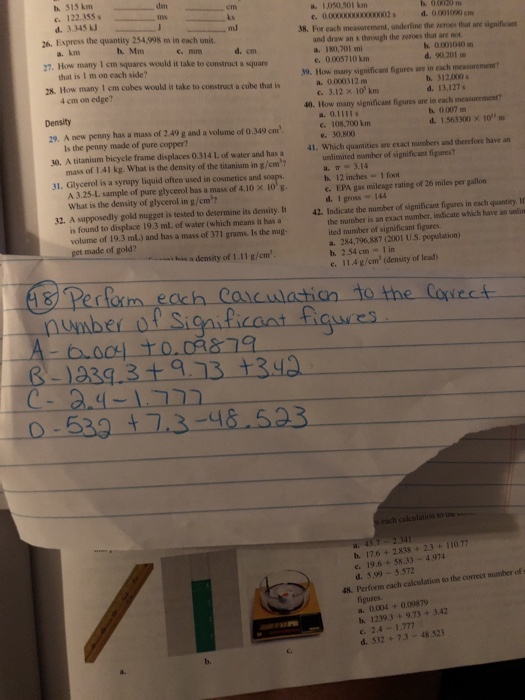 b. 515 km dm cm
c. 122.355 s ms ks
d. 3.345 kJ J mJ
26. Express the quantity 254,998 m in each unit.
a. km b. Mm c. mm d. cm
27. How many 1 cm squares would it take to construct a square
that is 1 m on each side?
28. How many 1 cm cubes would it take to construct a cube that is
4 cm on edge?
Density
29. A new penny has a mass of 2.49 g and a volume of 0.349 cm³.
Is the penny made of pure copper?
30. A titanium bicycle frame displaces 0.314 L of water and has a
mass of 1.41 kg. What is the density of the titanium in g/cm³?
31. Glycerol is a syrupy liquid often used in cosmetics and soaps.
A 3.25-L sample of pure glycerol has a mass of 4.10 × 10³ g.
What is the density of glycerol in g/cm³?
32. A supposedly gold nugget is tested to determine its density. It
is found to displace 19.3 mL of water (which means it has a
volume of 19.3 mL) and has a mass of 371 grams. Is the nug-
get made of gold?
has a density of 1.11 g/cm³.
a. 1,050,501 km b. 0.0020 m
c. 0.0000000000000002 s d. 0.001090 cm
38. For each measurement, underline the zeroes that are significant
and draw an x through the zeroes that are not.
a. 180,701 mi b. 0.001040 m
c. 0.005710 km d. 90,201 m
39. How many significant figures are in each measurement?
a. 0.000312 m b. 312,000 s
c. 3.12 × 10⁵ km d. 13,127 s
40. How many significant figures are in each measurement?
a. 0.1111 s b. 0.007 m
c. 108,700 km d. 1.563300 × 10¹¹ m
e. 30,800
41. Which quantities are exact numbers and therefore have an
unlimited number of significant figures?
a. π = 3.14
b. 12 inches = 1 foot
c. EPA gas mileage rating of 26 miles per gallon
d. 1 gross = 144
42. Indicate the number of significant figures in each quantity. If
the number is an exact number, indicate which have an unlim
ited number of significant figures.
a. 284,796,887 (2001 U.S. population)
b. 2.54 cm = 1 in
c. 11.4 g/cm³ (density of lead)
48 Perform each Calculation to the Correct
number of significant figures.
A - 0.004 + 0.09879
B - 1239.3 + 9.73 + 3.42
C - 2.4 - 1.777
D - 532 + 7.3 - 48.523
each calculation to the
a. 43.7 - 2.341
b. 17.6 + 2.838 + 2.3 + 110.77
c. 19.6 + 58.33 - 4.974
d. 5.99 - 5.572
48. Perform each calculation to the correct number of
figures.
a. 0.004 + 0.09879
b. 1239.3 + 9.73 + 3.42
c. 2.4 - 1.777
d. 532 + 7.3 - 48.523
a.
b.
c.